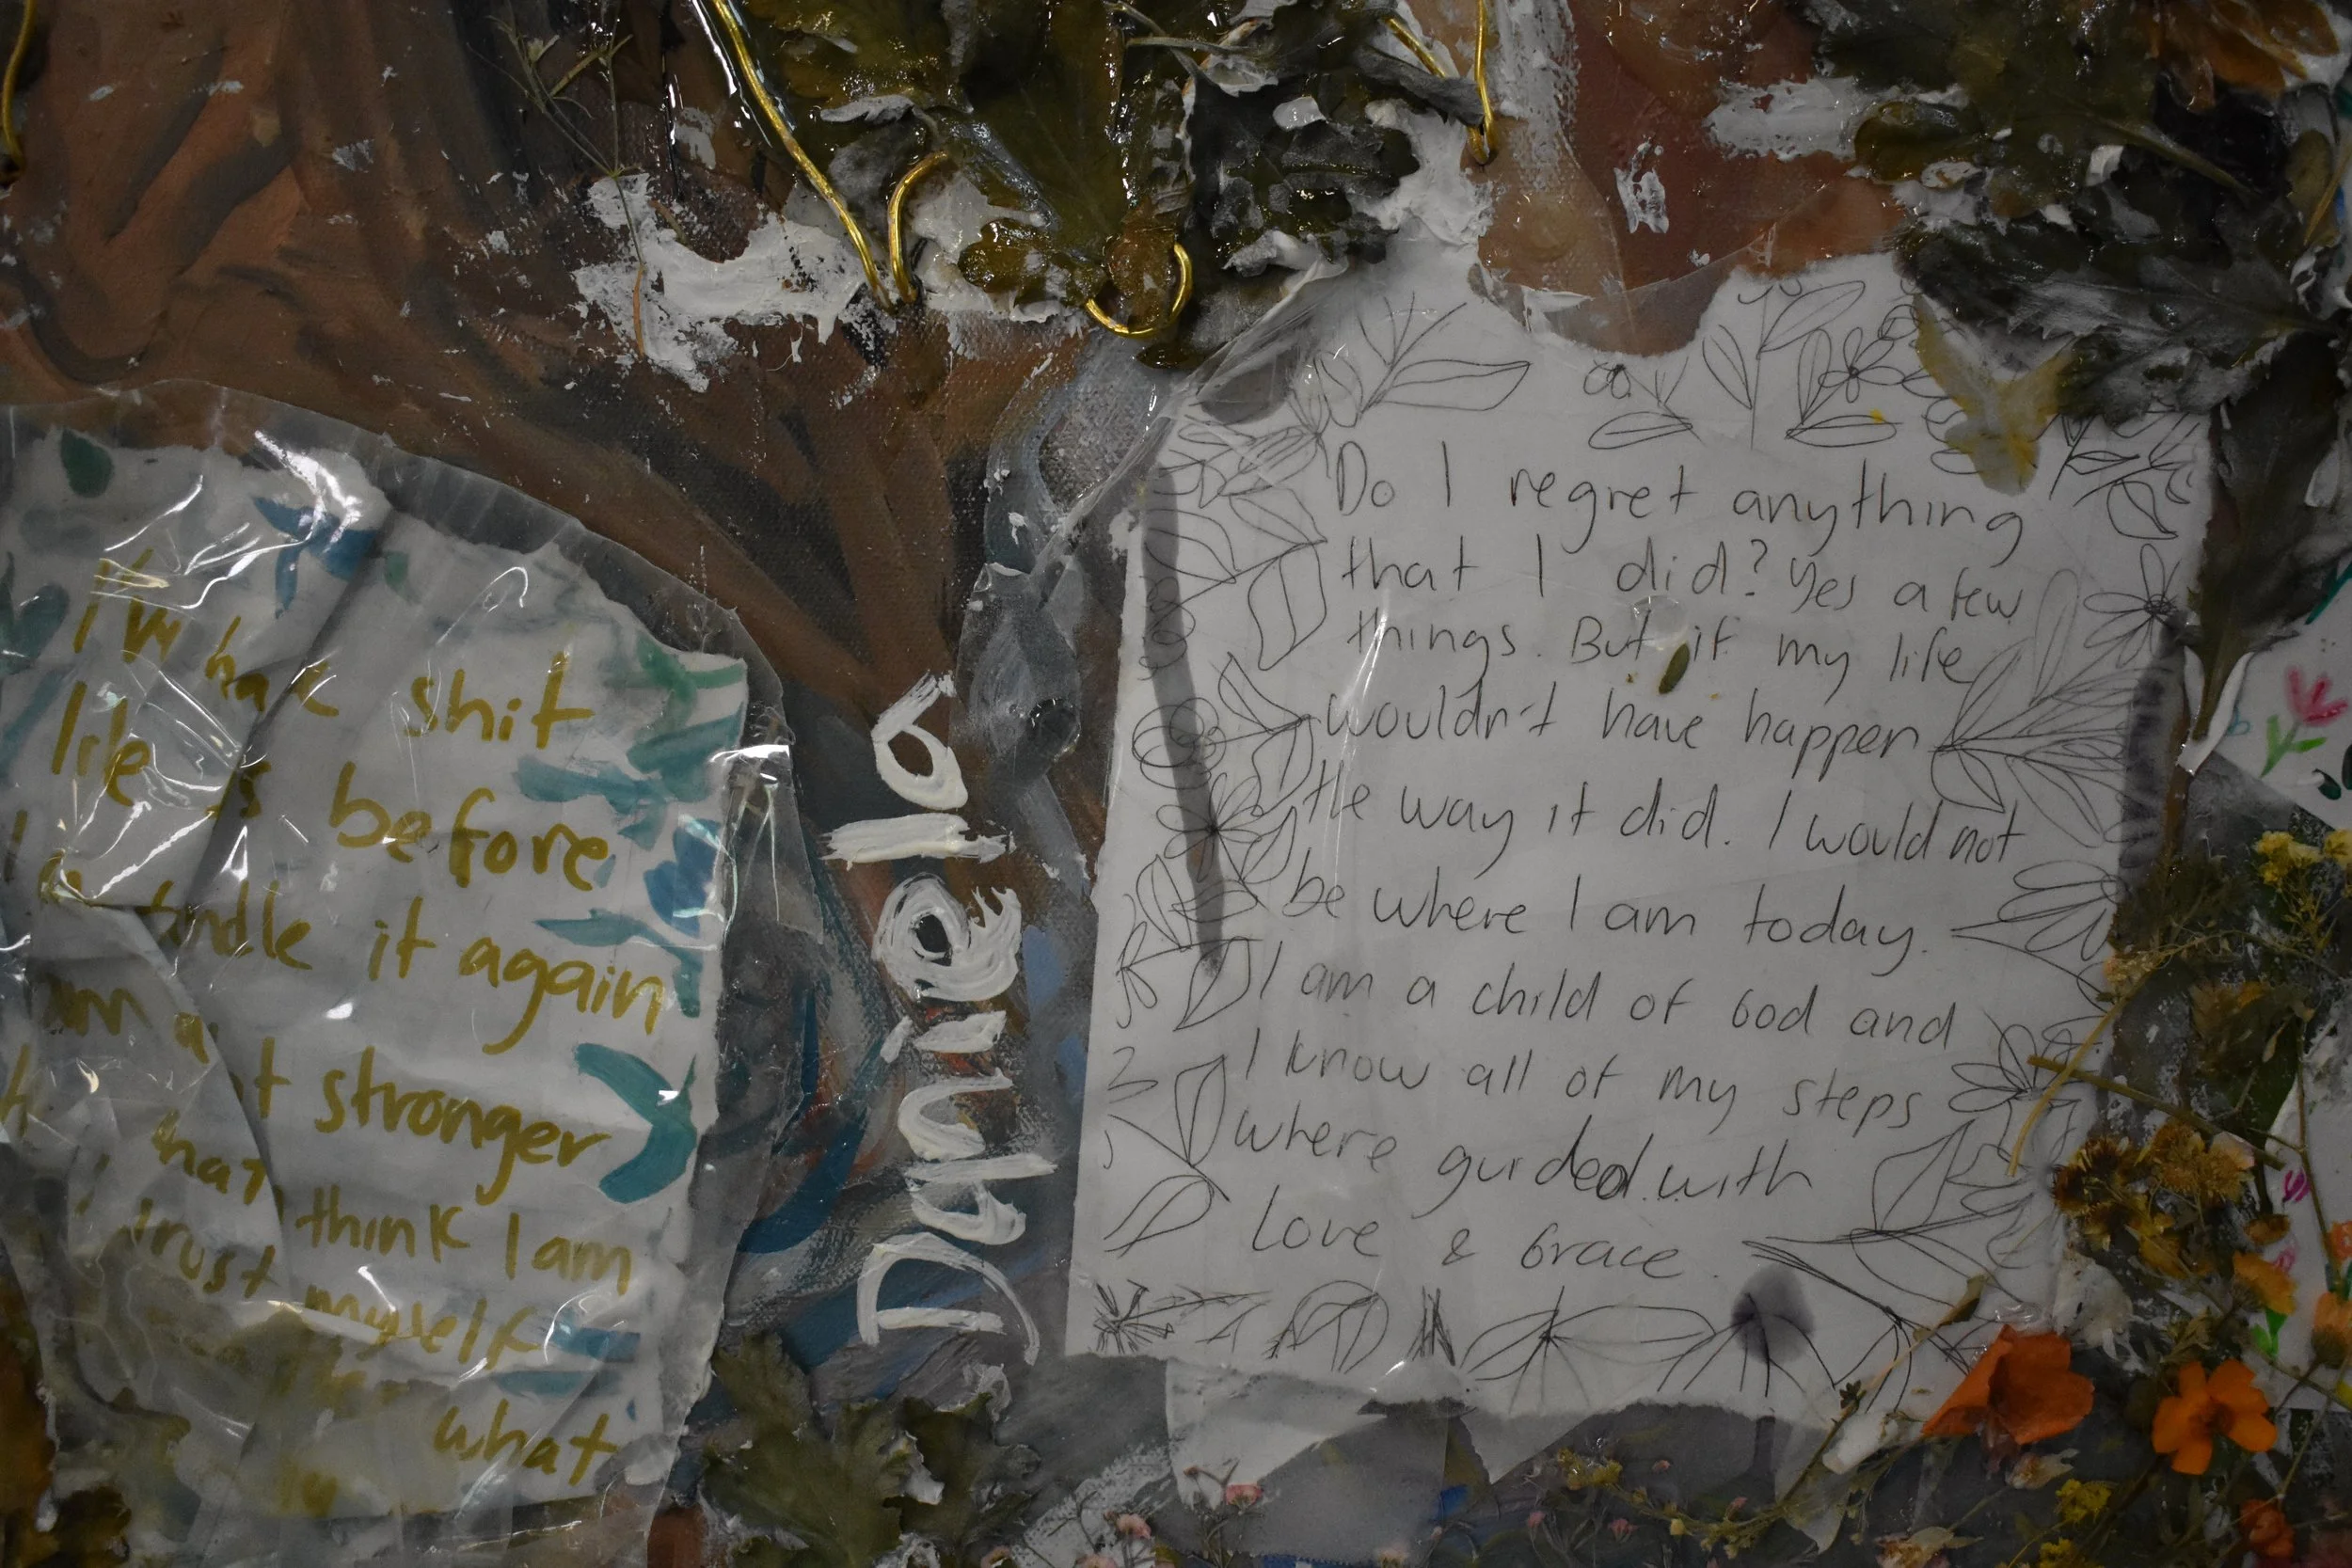 I've had shit
life is before
I handle it again
am a stronger
that I think I am
I trust myself
what
Daniela
Do I regret anything
that I did? Yes a few
things. But if my life
wouldn't have happen
the way it did. I would not
be where I am today.
I am a child of God and
I know all of my steps
where guided with
Love & Grace.